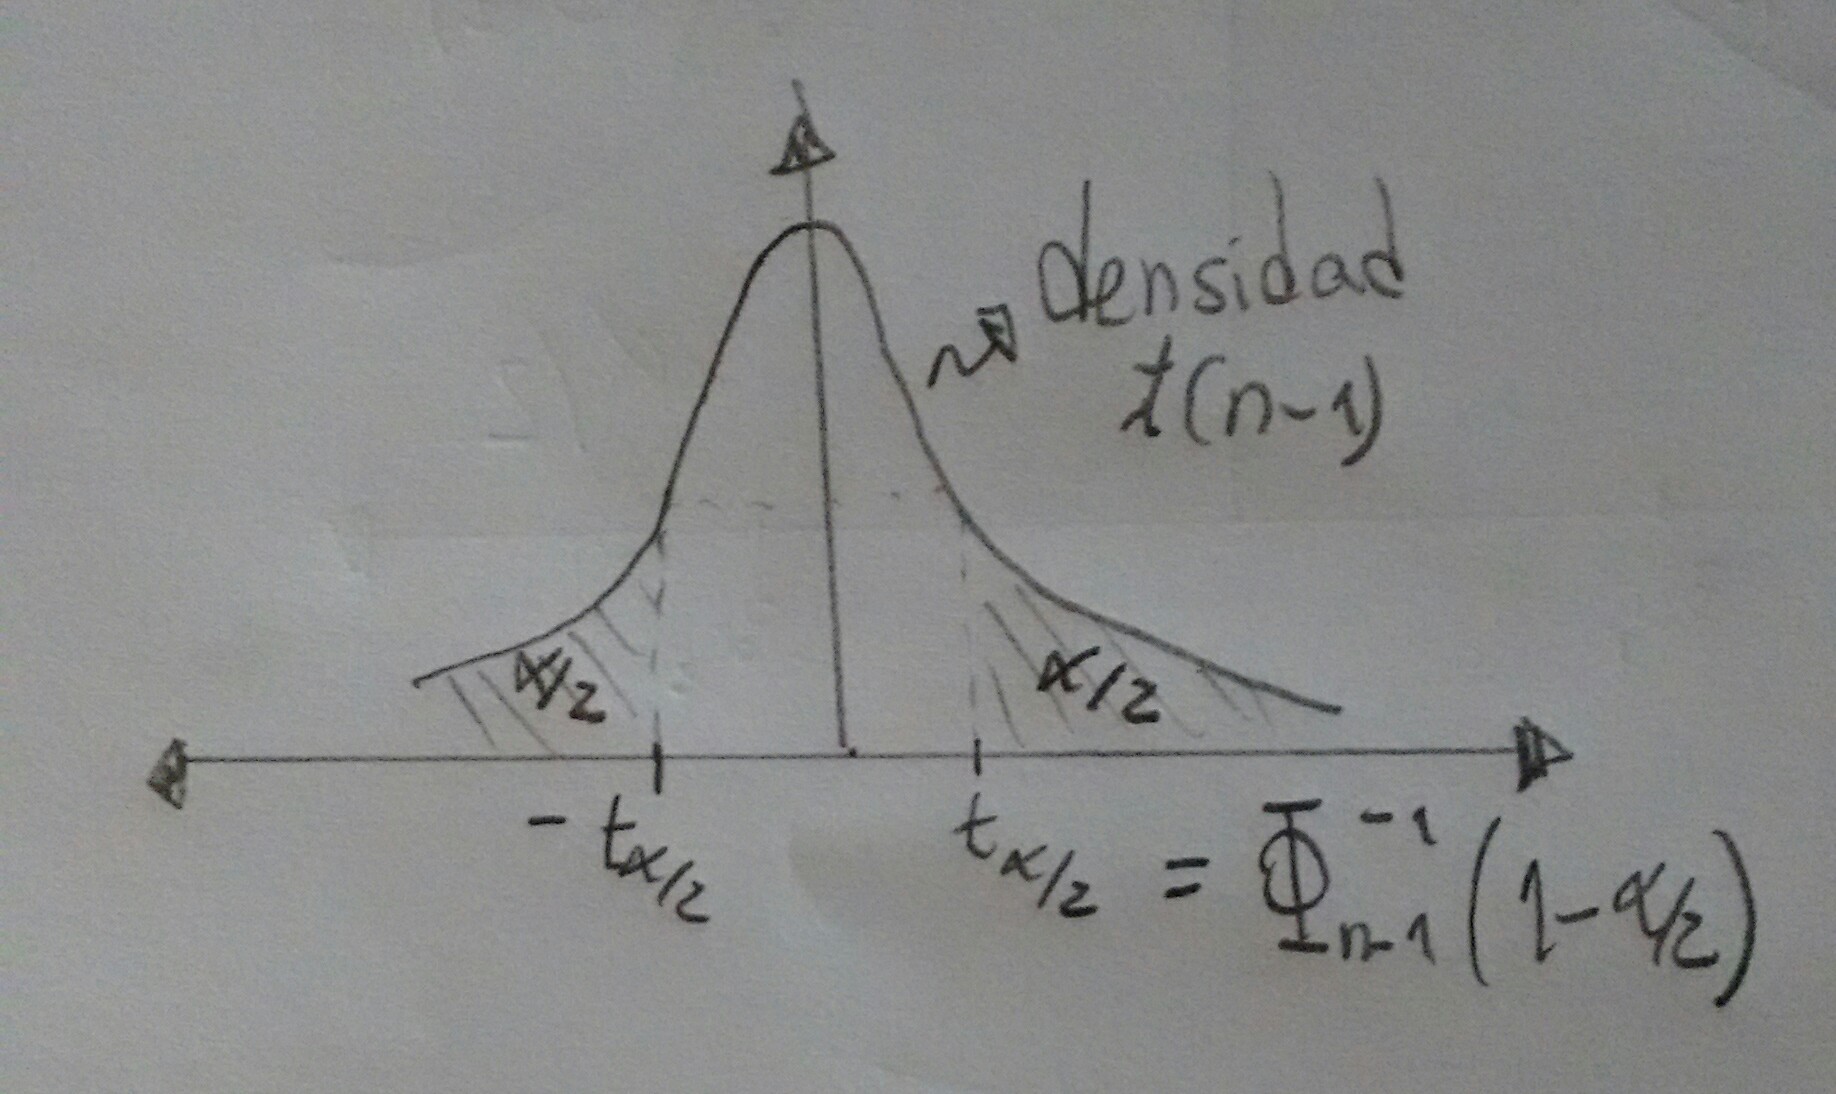 densidad
t(n-1)
α/2
α/2
-tα/2
tα/2 = Φ⁻¹n-1(1-α/2)